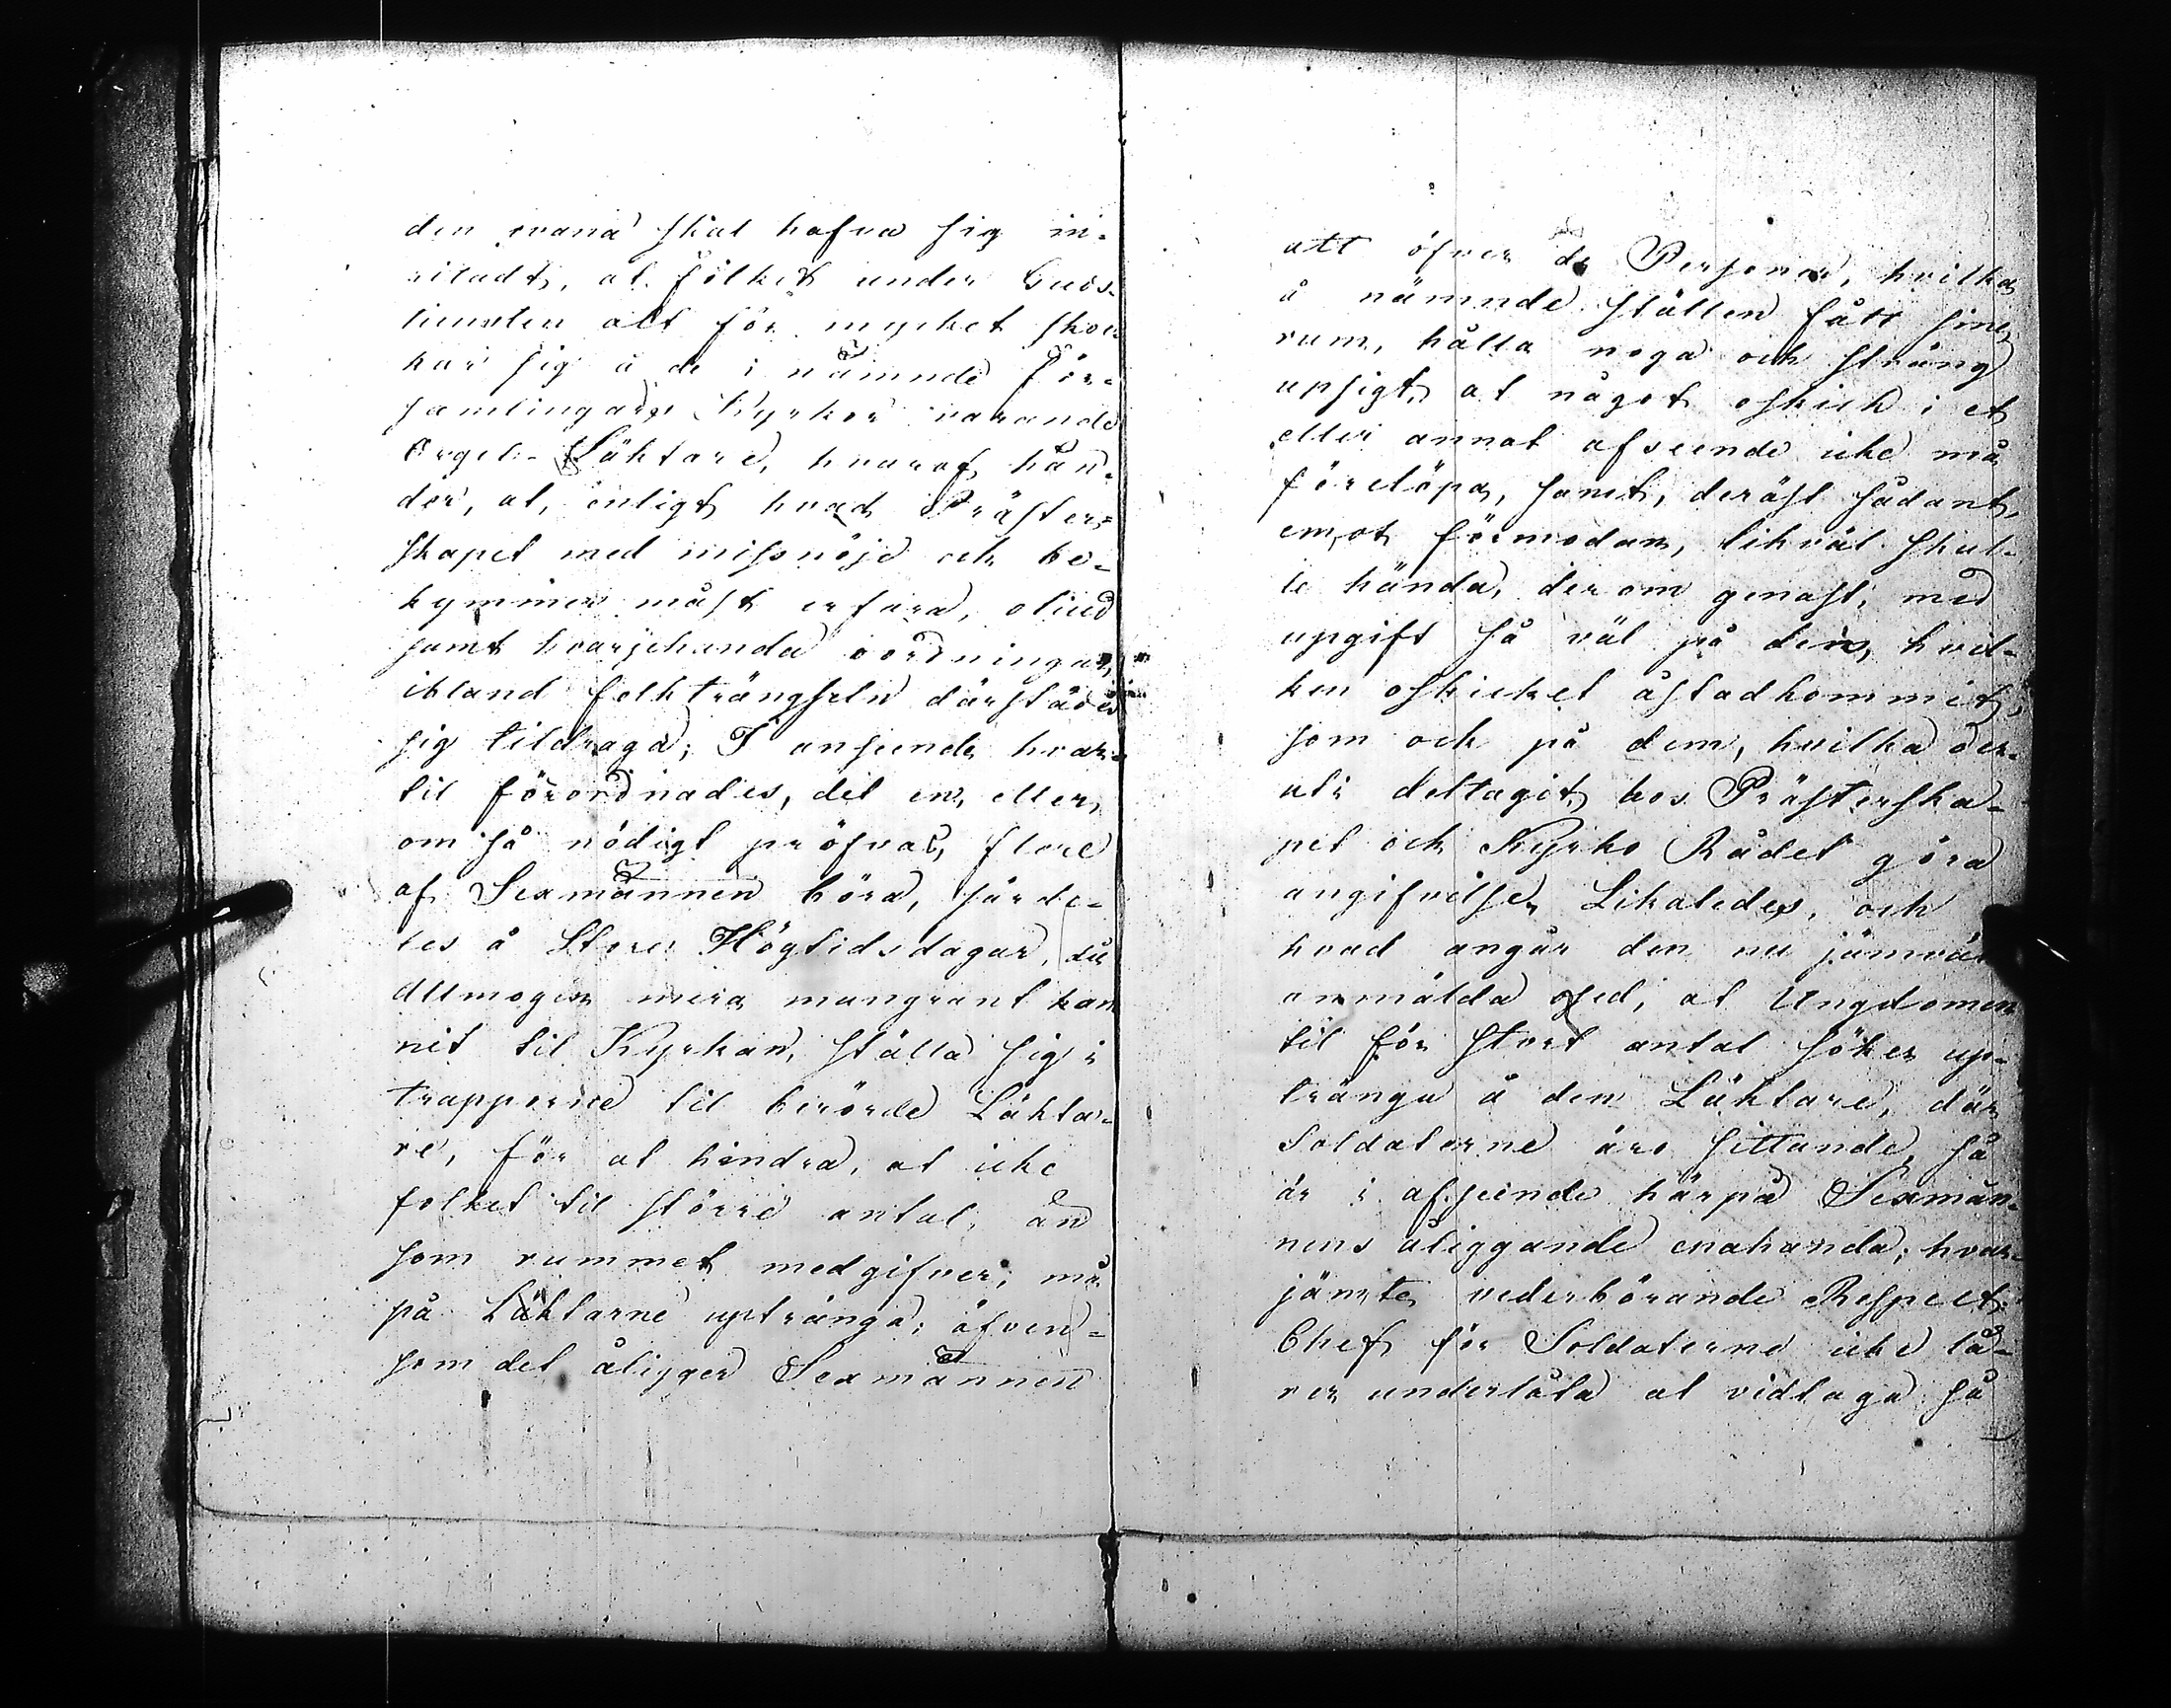 den ovana skal hafva sig in-
ritadt, at folket under Guds-
tiensten alt för mycket skoc-
kar sig å de i nämnde för-
samlingars Kyrkor varande
Orgel-Läktare, hvaraf hän-
der, at, enligt hvad Präster-
skapet med missnöje och be-
kymmer måst erfara, oliud
samt hvarjehanda oordningar,
ibland folkträngseln därstädes
sig tildraga; I anseende hvar-
til förordnades, det en, eller,
om så nödigt pröfvas, flere
af Sexmännen böra, särde-
les å Store Högtidsdagar, då
Allmogen mera mangrant kom
mit til Kyrkan, ställa sig i
trapporne til berörde Läkta-
re, för at hindra, at icke
folket til större antal, än
som rummet medgifver, må
på Läktarne uptränga; äfven-
som det åligger Sexmännen
att öfver de Personer, hvilka
å nämnde ställen fått sine
rum, hålla noga och sträng
upsigt, at något oskick i et
eller annat afseende icke må
förelöpa, samt, deräst sådant,
emot förmodan, likväl skul-
le hända, derom genast, med
upgift så väl på den, hvil-
ken oskicket åstadkommit,
som ock på dem, hvilka der-
uti deltagit, hos Prästerska-
pet och Kyrko Rådet göra
angifvelse. Likaledes, och
hvad angår den nu jämväl
anmälda osed, at Ungdomen
til för stort antal söker up-
tränga å den Läktare, där
Soldaterne äro sittande, så
är i afseende härpå Sexmän-
nens åliggande enahanda; hvar-
jämte vederbörande Respect.
Chef för Soldaterne icke lä-
rer underlåta at vidtaga så